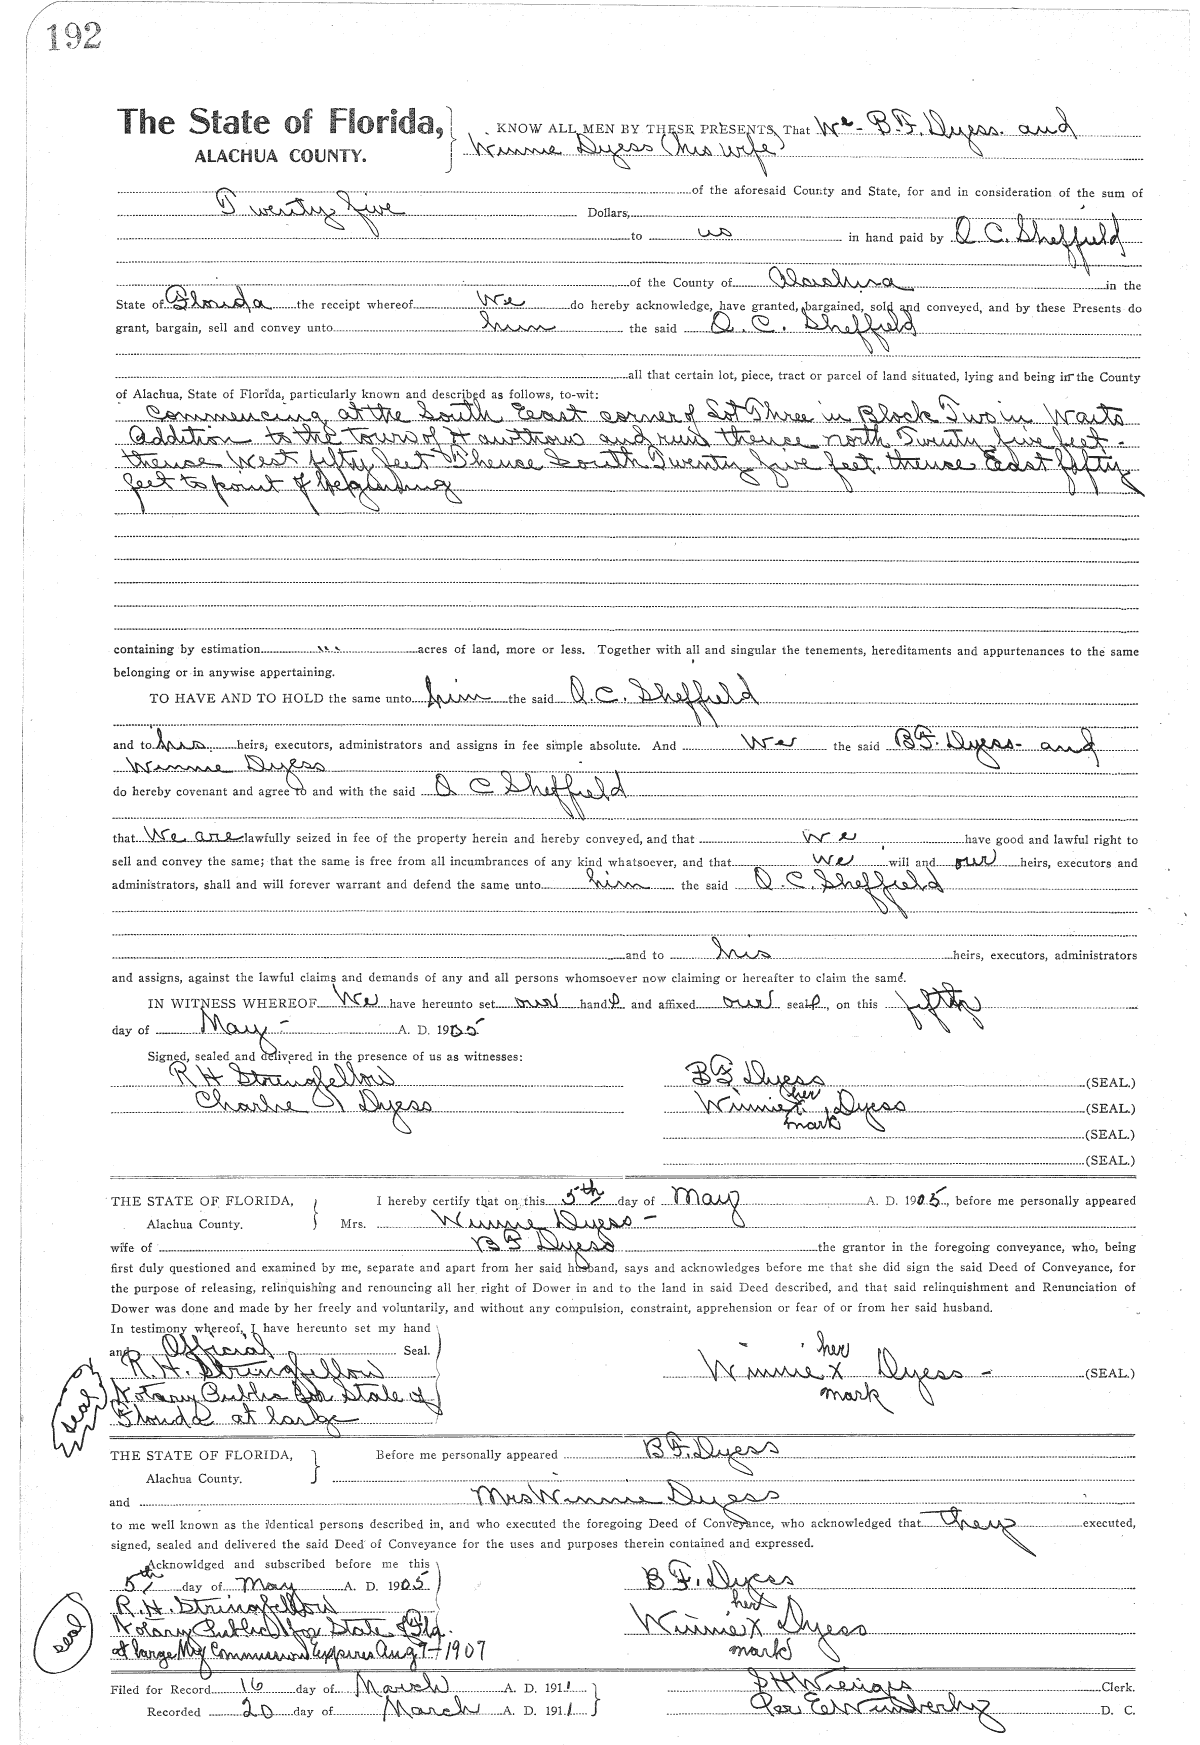 192
The State of Florida, KNOW ALL MEN BY THESE PRESENTS, That We - B.F. Dyess. and
ALACHUA COUNTY. Winnie Dyess (his wife)
of the aforesaid County and State, for and in consideration of the sum of
Twenty five Dollars,
to us in hand paid by O C. Sheffield
of the County of Alachua in the
State of Florida the receipt whereof We do hereby acknowledge, have granted, bargained, sold and conveyed, and by these Presents do
grant, bargain, sell and convey unto him the said O. C. Sheffield
all that certain lot, piece, tract or parcel of land situated, lying and being in the County
of Alachua, State of Florida, particularly known and described as follows, to-wit:
Commencing at the South East corner of Lot Three in Block Two in Waits
Addition to the town of Hawthorn and run thence north Twenty five feet -
thense West fifty feet Thense South Twenty five feet. thense East fifty
feet to point of beginning
containing by estimation acres of land, more or less. Together with all and singular the tenements, hereditaments and appurtenances to the same
belonging or in anywise appertaining.
TO HAVE AND TO HOLD the same unto him the said O.C. Sheffield
and to his heirs, executors, administrators and assigns in fee simple absolute. And We the said B.F. Dyess - and
Winnie Dyess
do hereby covenant and agree to and with the said O C Sheffield
that We are lawfully seized in fee of the property herein and hereby conveyed, and that we have good and lawful right to
sell and convey the same; that the same is free from all incumbrances of any kind whatsoever, and that we will and our heirs, executors and
administrators, shall and will forever warrant and defend the same unto him the said O.C. Sheffield
and to his heirs, executors, administrators
and assigns, against the lawful claims and demands of any and all persons whomsoever now claiming or hereafter to claim the same.
IN WITNESS WHEREOF We have hereunto set our hands and affixed our seals, on this fifth
day of May - A. D. 1905
Signed, sealed and delivered in the presence of us as witnesses:
R H Stringfellow BF Dyess (SEAL.)
her
Charlie Dyess Winnie x Dyess (SEAL.)
mark
(SEAL.)
(SEAL.)
THE STATE OF FLORIDA, I hereby certify that on this 5th day of May A. D. 1905, before me personally appeared
Alachua County. Mrs. Winnie Dyess -
wife of B F Dyess the grantor in the foregoing conveyance, who, being
first duly questioned and examined by me, separate and apart from her said husband, says and acknowledges before me that she did sign the said Deed of Conveyance, for
the purpose of releasing, relinquishing and renouncing all her right of Dower in and to the land in said Deed described, and that said relinquishment and Renunciation of
Dower was done and made by her freely and voluntarily, and without any compulsion, constraint, apprehension or fear of or from her said husband.
In testimony whereof, I have hereunto set my hand
and Official Seal. her
R.H. Stringfellow Winnie X Dyess - (SEAL)
seal Notary Public for State of mark
Florida at large
THE STATE OF FLORIDA, Before me personally appeared B F. Dyess
Alachua County.
and Mrs Winnie Dyess
to me well known as the identical persons described in, and who executed the foregoing Deed of Conveyance, who acknowledged that they executed,
signed, sealed and delivered the said Deed of Conveyance for the uses and purposes therein contained and expressed.
Acknowldged and subscribed before me this
5th day of May A. D. 1905 B F. Dyess
R.H. Stringfellow her
seal Notary Public for State of Fla. Winnie X Dyess
at large My Commission Expires Aug 7-1907 mark
Filed for Record 16 day of March A. D. 1911 Clerk.
Recorded 20 day of March A. D. 1911 Per E Wimberly D. C.